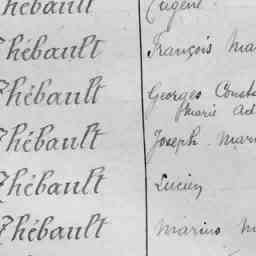 Thébault Eugène
Thébault François Ma
Thébault Georges Const
Marie Ad
Thébault Joseph Mari
Thébault Lucien
Thébault Marius M